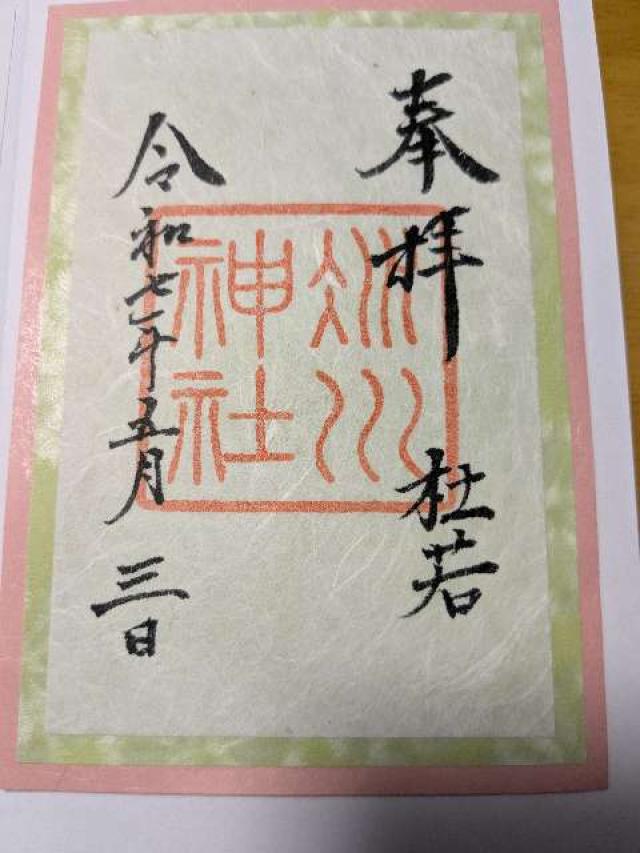 奉拝
杜若
氷川
神社
令和七年五月三日